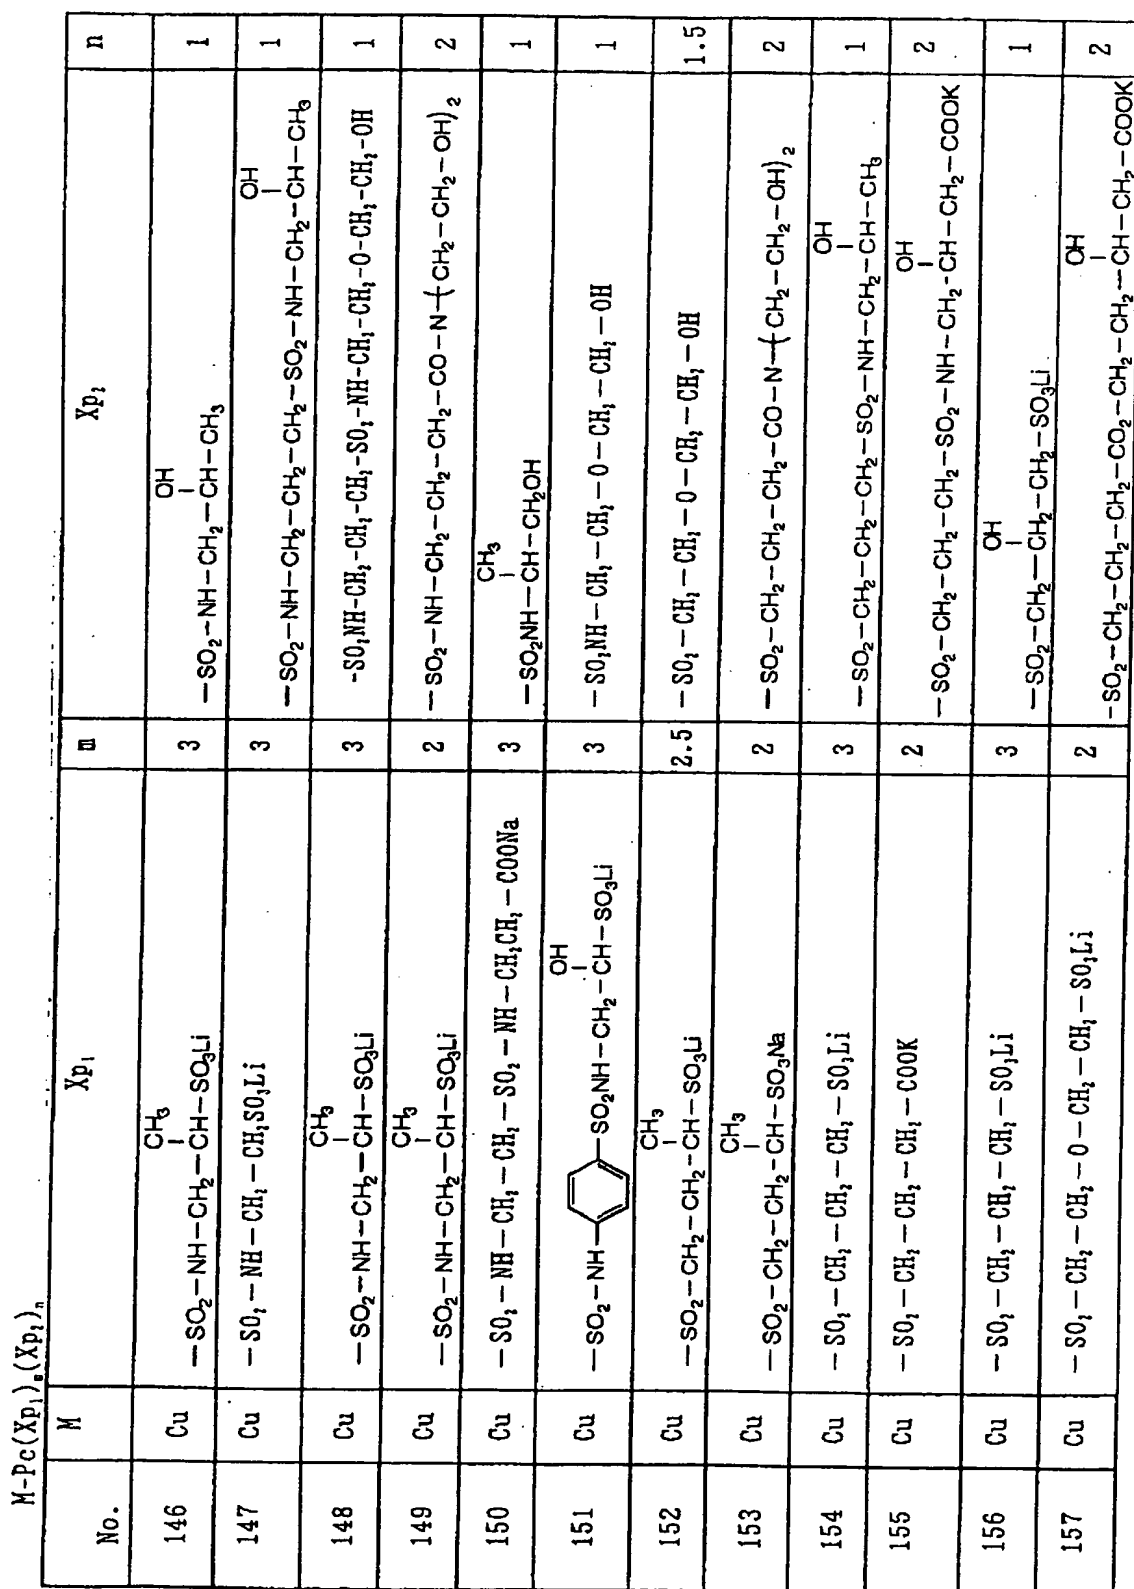 M-Pc(Xp₁)ₘ(Xp₂)ₙ
No. M Xp₁ m Xp₂ n
CH₃ OH
146 Cu —SO₂—NH—CH₂—CH—SO₃Li 3 —SO₂—NH—CH₂—CH—CH₃ 1
OH
147 Cu —SO₂—NH—CH₂—CH₂SO₃Li 3 —SO₂—NH—CH₂—CH₂—CH₂—SO₂—NH—CH₂—CH—CH₃ 1
CH₃
148 Cu —SO₂—NH—CH₂—CH—SO₃Li 3 -SO₂NH-CH₂-CH₂-CH₂-SO₂-NH-CH₂-CH₂-O-CH₂-CH₂-OH 1
CH₃
149 Cu —SO₂—NH—CH₂—CH—SO₃Li 2 —SO₂—NH—CH₂—CH₂—CH₂—CO—N—(CH₂—CH₂—OH)₂ 2
CH₃
150 Cu —SO₂—NH—CH₂—CH₂—SO₂—NH—CH₂CH₂—COONa 3 —SO₂NH—CH—CH₂OH 1
OH
151 Cu —SO₂—NH— —SO₂NH—CH₂—CH—SO₃Li 3 —SO₂NH—CH₂—CH₂—O—CH₂—CH₂—OH 1
CH₃
152 Cu —SO₂—CH₂—CH₂—CH—SO₃Li 2.5 —SO₂—CH₂—CH₂—O—CH₂—CH₂—OH 1.5
CH₃
153 Cu —SO₂—CH₂—CH₂—CH—SO₃Na 2 —SO₂—CH₂—CH₂—CH₂—CO—N—(CH₂—CH₂—OH)₂ 2
OH
154 Cu —SO₂—CH₂—CH₂—CH₂—SO₃Li 3 —SO₂—CH₂—CH₂—CH₂—SO₂—NH—CH₂—CH—CH₃ 1
OH
155 Cu —SO₂—CH₂—CH₂—CH₂—COOK 2 —SO₂—CH₂—CH₂—CH₂—SO₂—NH—CH₂—CH—CH₂—COOK 2
OH
156 Cu —SO₂—CH₂—CH₂—CH₂—SO₃Li 3 —SO₂—CH₂—CH—CH₂—SO₃Li 1
OH
157 Cu —SO₂—CH₂—CH₂—O—CH₂—CH₂—SO₃Li 2 —SO₂—CH₂—CH₂—CH₂—CO₂—CH₂—CH₂—CH—CH₂—COOK 2